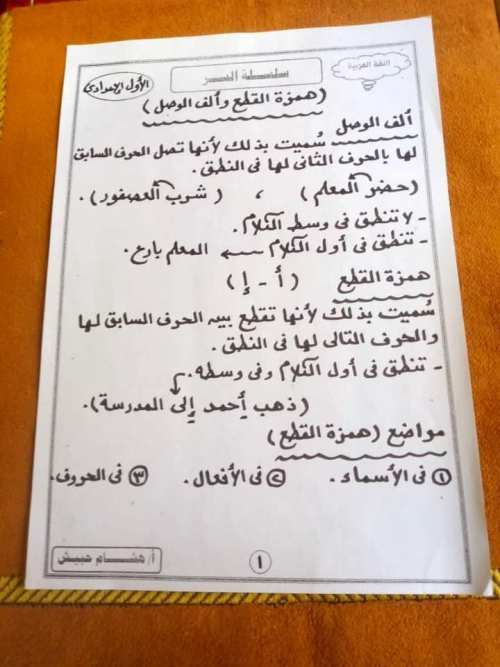 اللغة العربية
سلسلة النصر
الأول الإعدادى
(همزة القطع وألف الوصل)
ألف الوصل
سُميت بذلك لأنها تصل الحرف السابق
لها بالحرف الثانى لها فى النطق.
(حضر المعلم) ، (شرب العصفور).
- لا تنطق فى وسط الكلام.
- تنطق فى أول الكلام ← المعلم بارع.
همزة القطع (أ - إ)
سُميت بذلك لأنها تقطع بين الحرف السابق لها
والحرف التالى لها فى النطق.
- تنطق فى أول الكلام وفى وسطه.
(ذهب أحمد إلى المدرسة).
مواضع (همزة القطع)
١ فى الأسماء. ٢ فى الأفعال. ٣ فى الحروف.
١
أ/ هشام حبيش